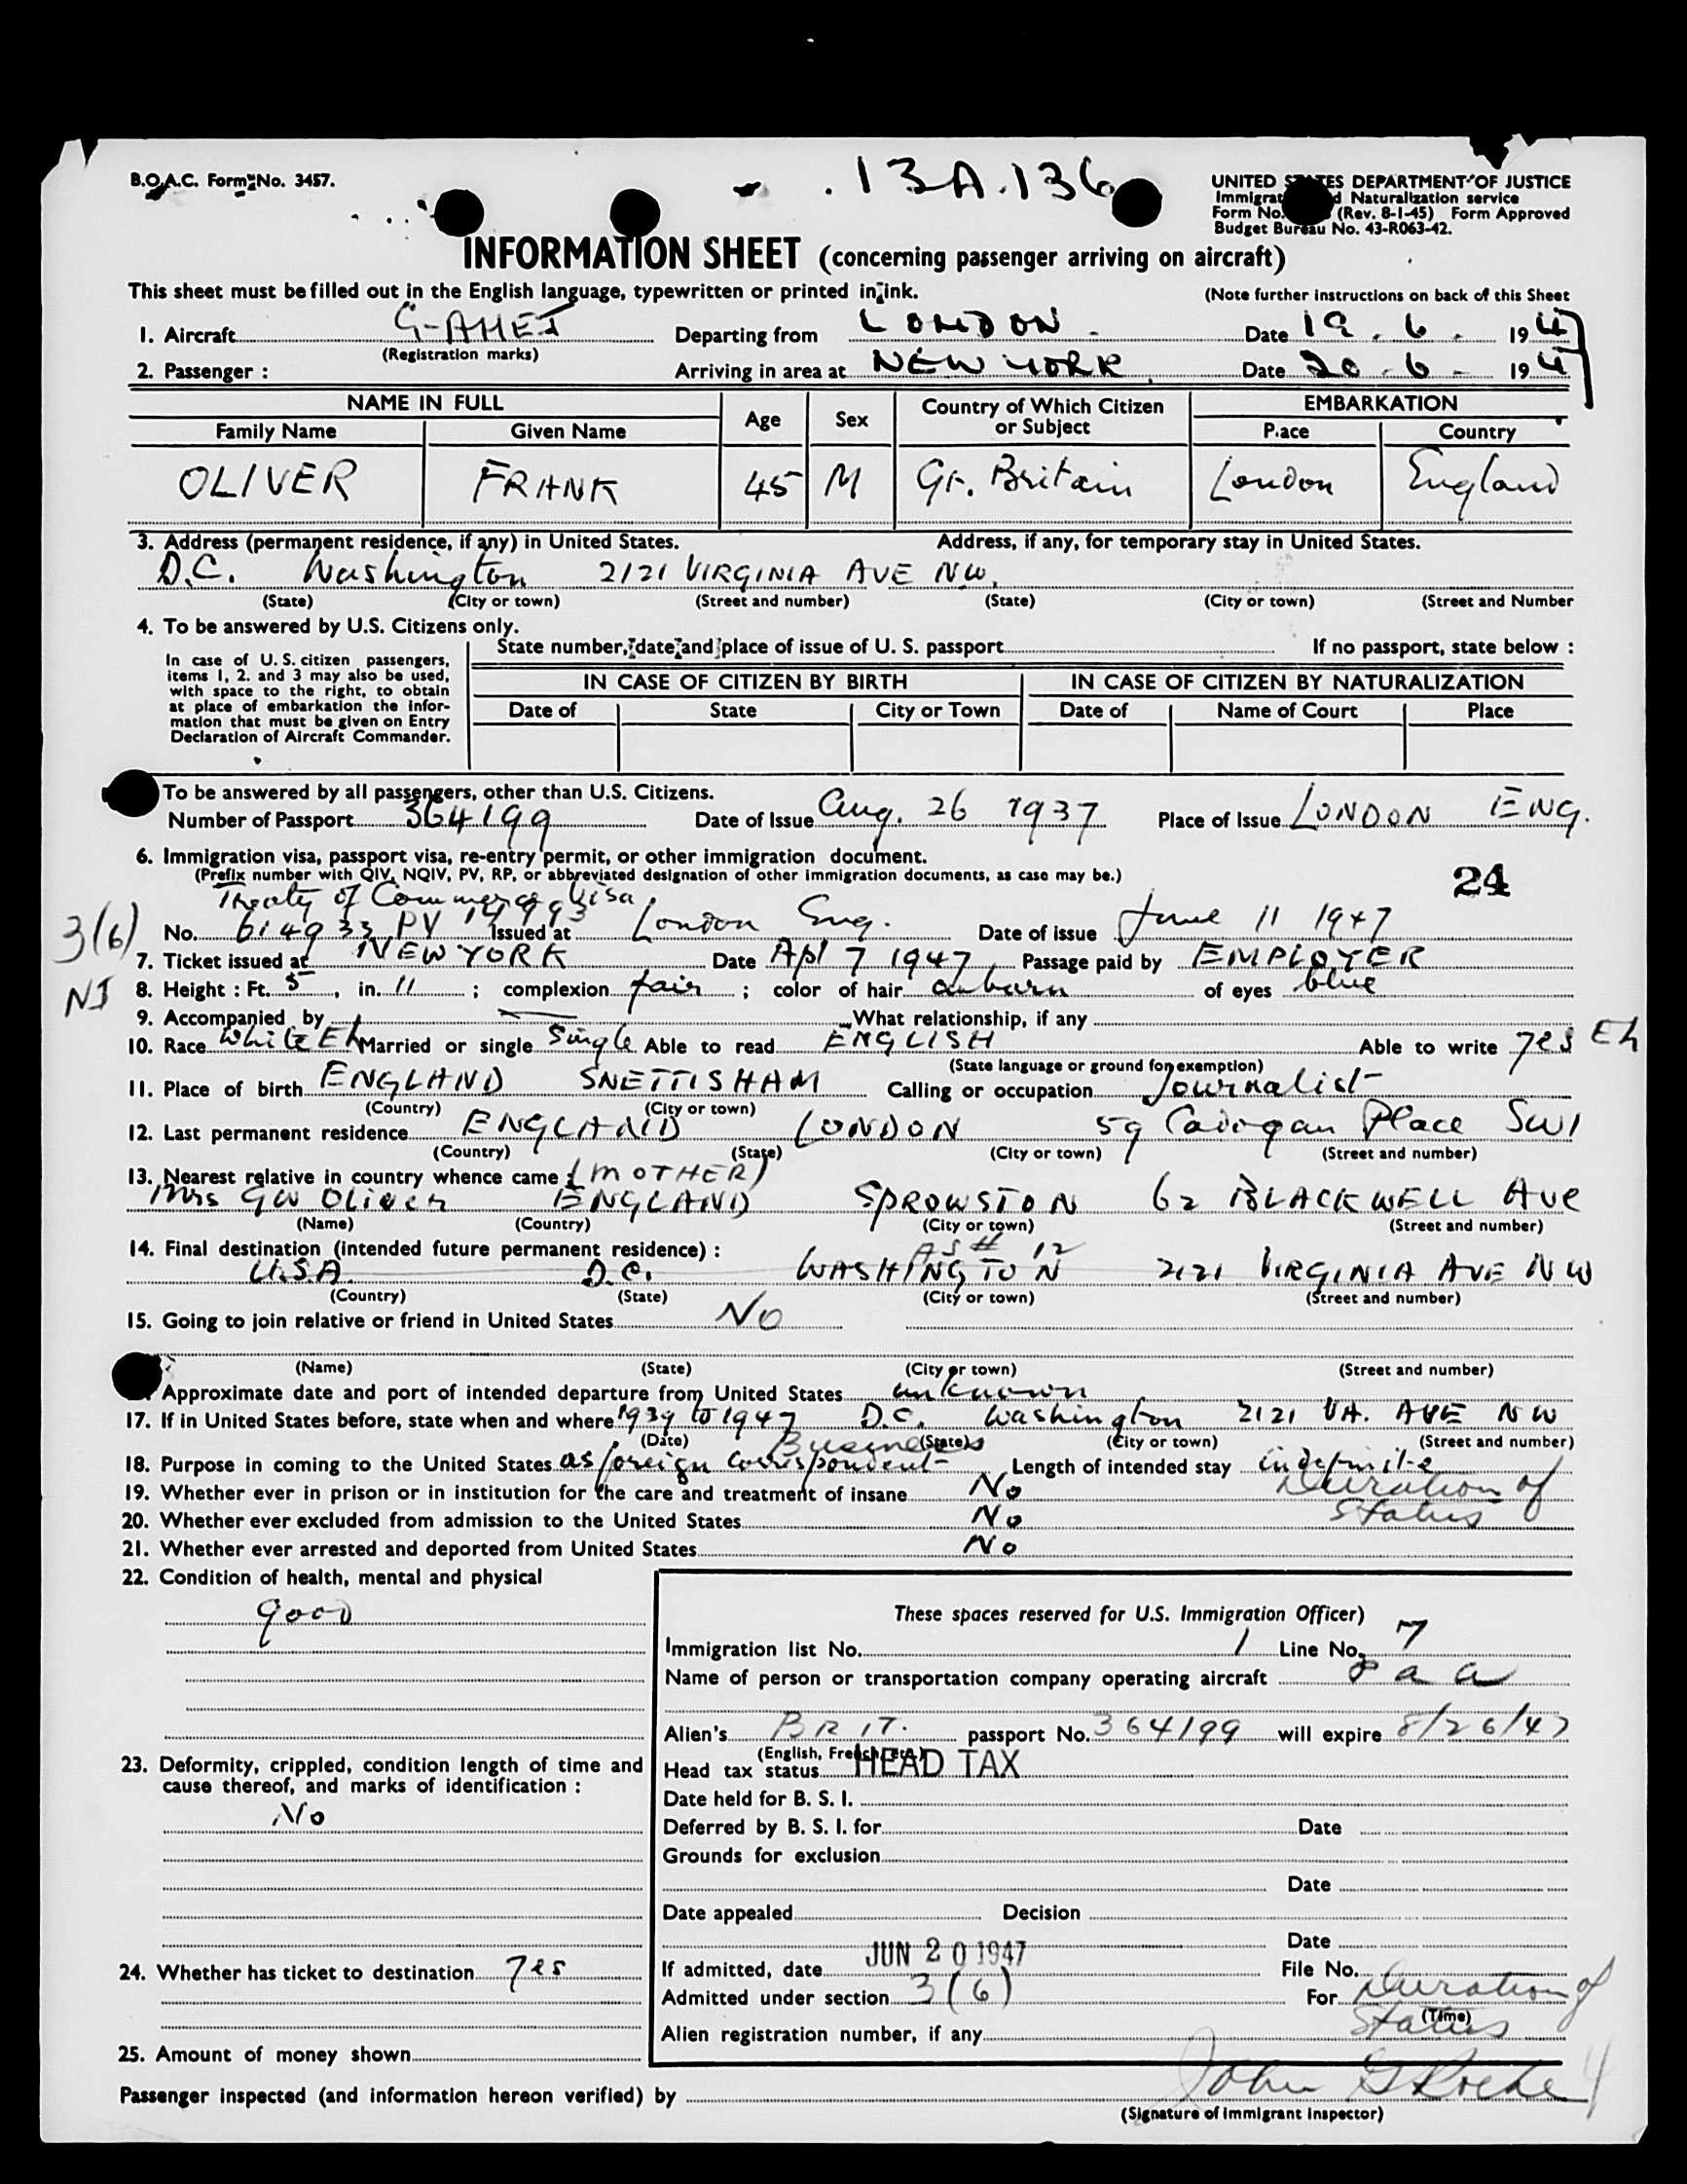 B.O.A.C. Form No. 3457.
.13A.136
UNITED STATES DEPARTMENT OF JUSTICE
Immigrat d Naturalization service
Form No. (Rev. 8-1-45) Form Approved
Budget Bureau No. 43-R063-42.
INFORMATION SHEET (concerning passenger arriving on aircraft)
This sheet must be filled out in the English language, typewritten or printed in ink. (Note further instructions on back of this Sheet
1. Aircraft G-AHEJ Departing from LONDON Date 19.6. 1947
(Registration marks)
2. Passenger : Arriving in area at NEW YORK Date 20.6. 1947
NAME IN FULL Age Sex Country of Which Citizen or Subject EMBARKATION
Family Name Given Name Place Country
OLIVER FRANK 45 M Gt. Britain London England
3. Address (permanent residence, if any) in United States. Address, if any, for temporary stay in United States.
D.C. Washington 2121 VIRGINIA AVE NW.
(State) (City or town) (Street and number) (State) (City or town) (Street and Number
4. To be answered by U.S. Citizens only.
State number, date and place of issue of U. S. passport If no passport, state below :
In case of U. S. citizen passengers,
items 1, 2. and 3 may also be used,
with space to the right, to obtain
at place of embarkation the infor-
mation that must be given on Entry
Declaration of Aircraft Commander.
IN CASE OF CITIZEN BY BIRTH IN CASE OF CITIZEN BY NATURALIZATION
Date of State City or Town Date of Name of Court Place
To be answered by all passengers, other than U.S. Citizens.
Number of Passport 364199 Date of Issue Aug. 26 1937 Place of Issue LONDON ENG.
6. Immigration visa, passport visa, re-entry permit, or other immigration document.
(Prefix number with QIV, NQIV, PV, RP, or abbreviated designation of other immigration documents, as case may be.)
24
Treaty of Commerce Visa
3(6) No. 614933 PV Issued at London Eng. Date of issue June 11 1947
7. Ticket issued at NEW YORK Date Apl 7 1947 Passage paid by EMPLOYER
NI 8. Height : Ft. 5, in. 11 ; complexion fair ; color of hair auburn of eyes blue
9. Accompanied by What relationship, if any
10. Race White Eh Married or single Single Able to read ENGLISH Able to write Yes Eh
(State language or ground for exemption)
11. Place of birth ENGLAND SNETTISHAM Calling or occupation Journalist
(Country) (City or town)
12. Last permanent residence ENGLAND LONDON 59 Cadogan Place SW1
(Country) (State) (City or town) (Street and number)
13. Nearest relative in country whence came (MOTHER)
Mrs GW Oliver ENGLAND SPROWSTON 62 BLACKWELL Ave
(Name) (Country) (City or town) (Street and number)
14. Final destination (intended future permanent residence) : AS # 12
U.S.A. D.C. WASHINGTON 2121 VIRGINIA AVE NW
(Country) (State) (City or town) (Street and number)
15. Going to join relative or friend in United States No
(Name) (State) (City or town) (Street and number)
Approximate date and port of intended departure from United States unknown
17. If in United States before, state when and where 1939 to 1947 D.C. Washington 2121 VA. AVE NW
(Date) (State) (City or town) (Street and number)
Business
18. Purpose in coming to the United States as foreign correspondent Length of intended stay indefinite
19. Whether ever in prison or in institution for the care and treatment of insane No Duration of
20. Whether ever excluded from admission to the United States No Status
21. Whether ever arrested and deported from United States No
22. Condition of health, mental and physical
good
These spaces reserved for U.S. Immigration Officer)
Immigration list No. 1 Line No. 7
Name of person or transportation company operating aircraft
Alien's BRIT. passport No. 364199 will expire 8/26/47
(English, French, etc.)
23. Deformity, crippled, condition length of time and
cause thereof, and marks of identification :
No
Head tax status HEAD TAX
Date held for B. S. I.
Deferred by B. S. I. for Date
Grounds for exclusion
Date
Date appealed Decision
Date
24. Whether has ticket to destination Yes
If admitted, date JUN 20 1947 File No.
Admitted under section 3(6) For Duration of
(Time)
Status
Alien registration number, if any
25. Amount of money shown
Passenger inspected (and information hereon verified) by John
(Signature of Immigrant Inspector)